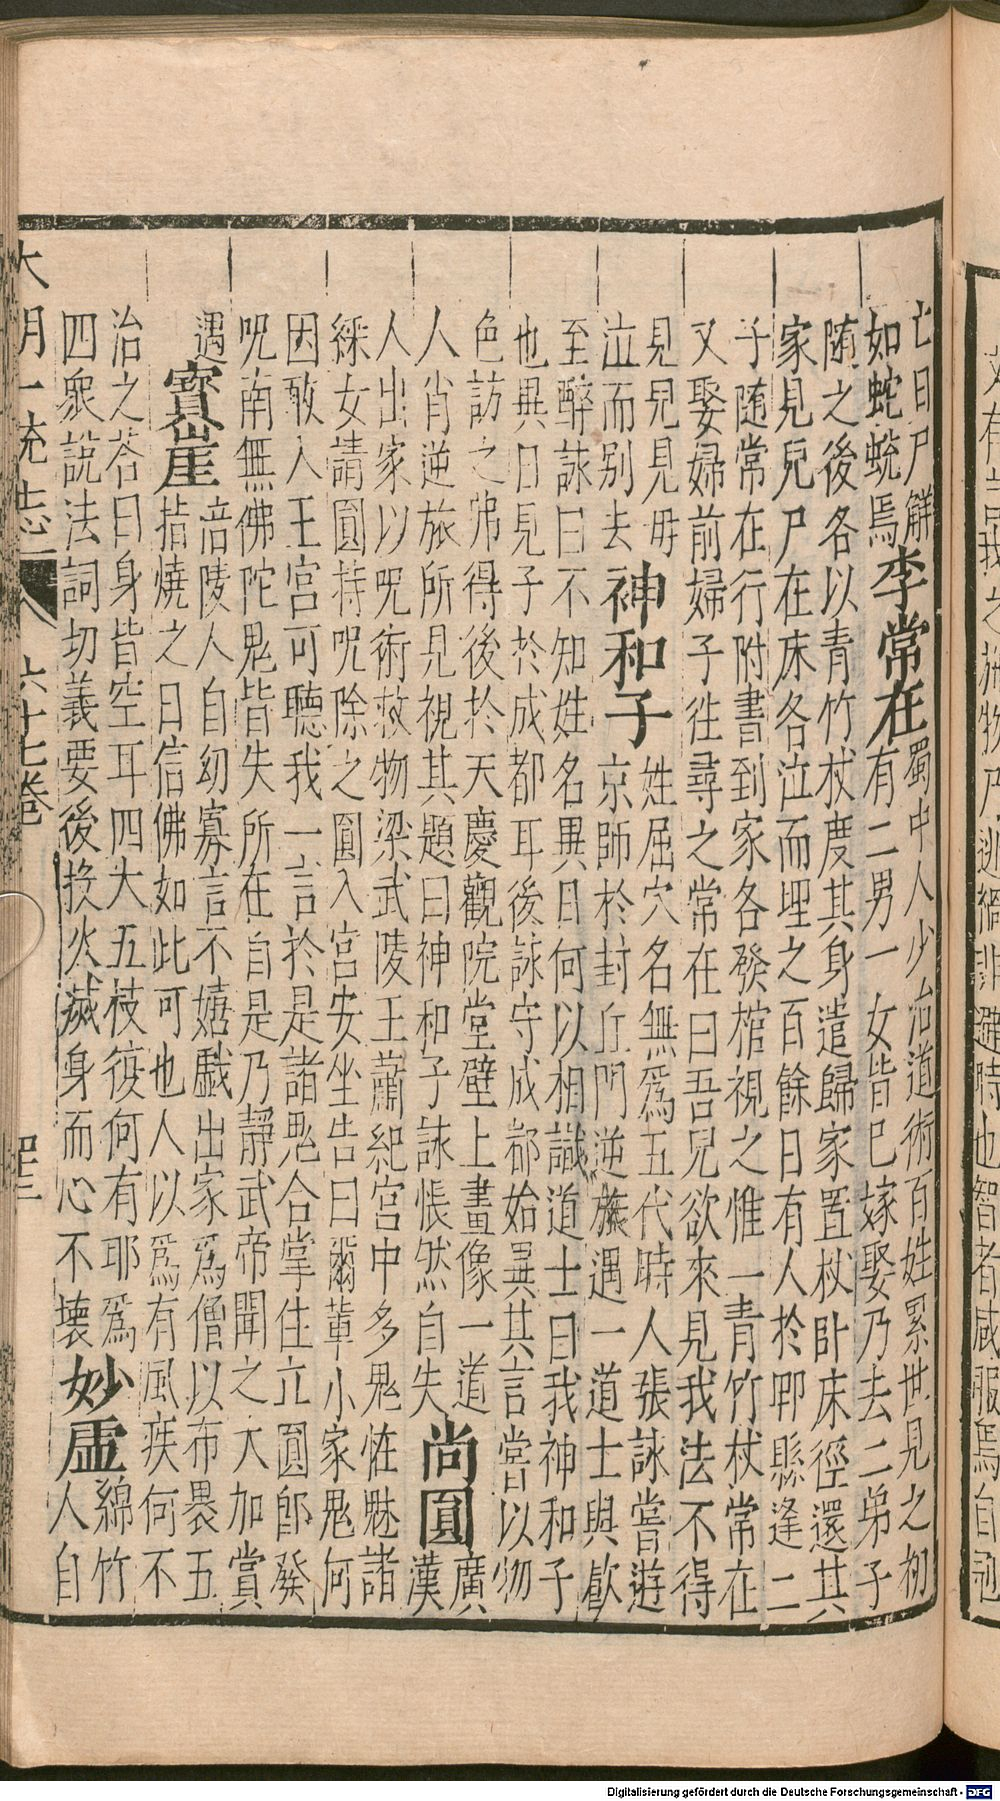 亡日尸觧
如蛇蛻焉
李常在
蜀中人少治道術百姓累世見之初
有二男一女皆已嫁娶乃去二弟子
随之後各以青竹杖度其身遣歸家置杖卧床徑還其
家見兒尸在床各泣而埋之百餘日有人於郫縣逢二
子随常在行附書到家各發棺視之惟一青竹杖常在
又娶婦前婦子徃尋之常在曰吾兒欲來見我法不得
見見見毋
泣而别去
神和子
姓屈穴名無爲五代時人張詠嘗遊
京師於封丘門逆旅遇一道士與歡
至醉詠曰不知姓名異日何以相識道士曰我神和子
也異日見子於成都耳後詠守成都始異其言嘗以物
色訪之弗得後於天慶觀院堂壁上畫像一道
人肖逆旅所見視其題曰神和子詠悵然自失
尚圓
廣
漢
人出家以呪術救物梁武陵王蕭紀宫中多鬼恠魅諸
綵女請圓持呪除之圓入宫安坐告曰爾輩小家鬼何
因敢入王宫可聽我一言於是諸鬼合掌住立圓卽發
呪南無佛陀鬼皆失所在自是乃靜武帝聞之大加賞
遇
寳崖
涪陵人自幼寡言不嬉戯出家爲僧以布裹五
指燒之曰信佛如此可也人以爲有風疾何不
治之荅曰身皆空耳四大五枝復何有耶爲
四衆說法詞切義要後投火滅身而心不壊
妙虛
綿竹
人自
大明一統志 六十七卷 四十三
Digitalisierung gefördert durch die Deutsche Forschungsgemeinschaft - DFG